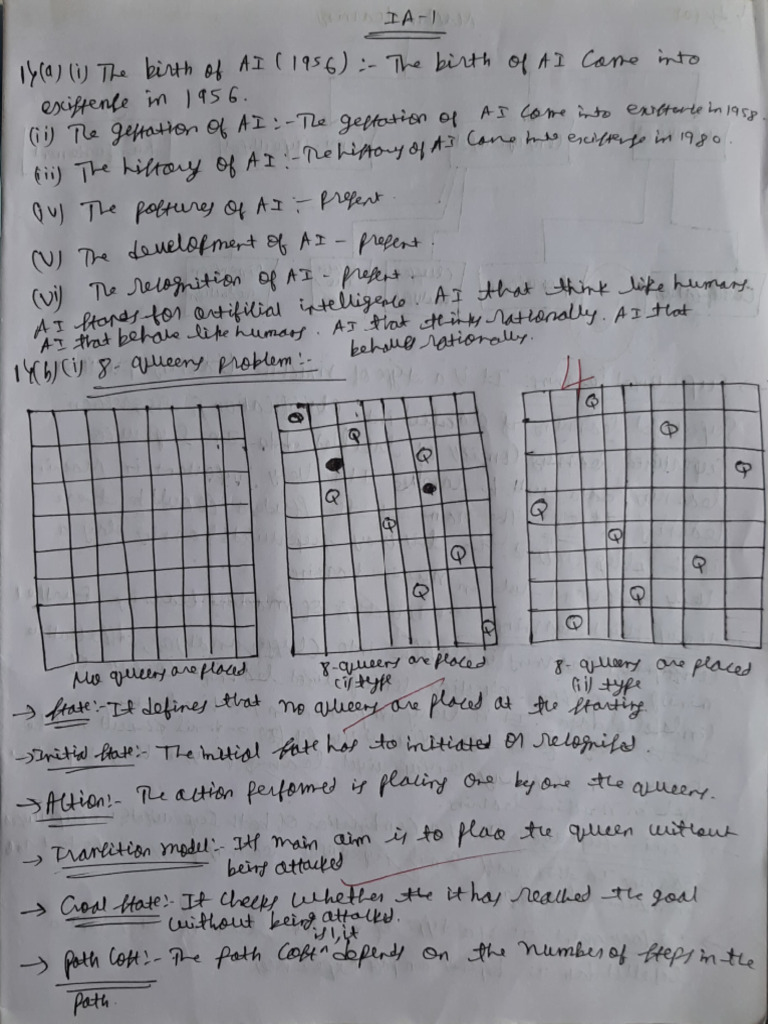 IA-1
1)(a)(i) The birth of AI (1956) :- The birth of AI came into
existence in 1956.
(ii) The gestation of AI :- The gestation of AI came into existence in 1958.
(iii) The history of AI :- The history of AI came into existence in 1980.
(iv) The postures of AI :- present.
(v) The development of AI - present.
(vi) The recognition of AI - present.
AI stands for artificial intelligence. AI that think like humans.
AI that behave like humans. AI that thinks rationally. AI that
behaves rationally.
1)(b)(i) 8-queens problem:-
4
Q Q Q
Q Q Q
Q Q Q
Q Q Q
Q Q
Q Q
Q Q
Q Q
No queens are placed
8-queens are placed
(i) type
8-queens are placed
(ii) type
→ State:- It defines that no queens are placed at the starting.
→ Initial state:- The initial state has to initiated or recognised.
→ Action:- The action performed is placing one by one the queens.
→ Transition model:- Its main aim is to place the queen without
being attacked
→ Goal state:- It checks whether the it has reached the goal
without being attacked.
is 1, it
→ Path cost:- The path cost ^ depends on the number of steps in the
path.